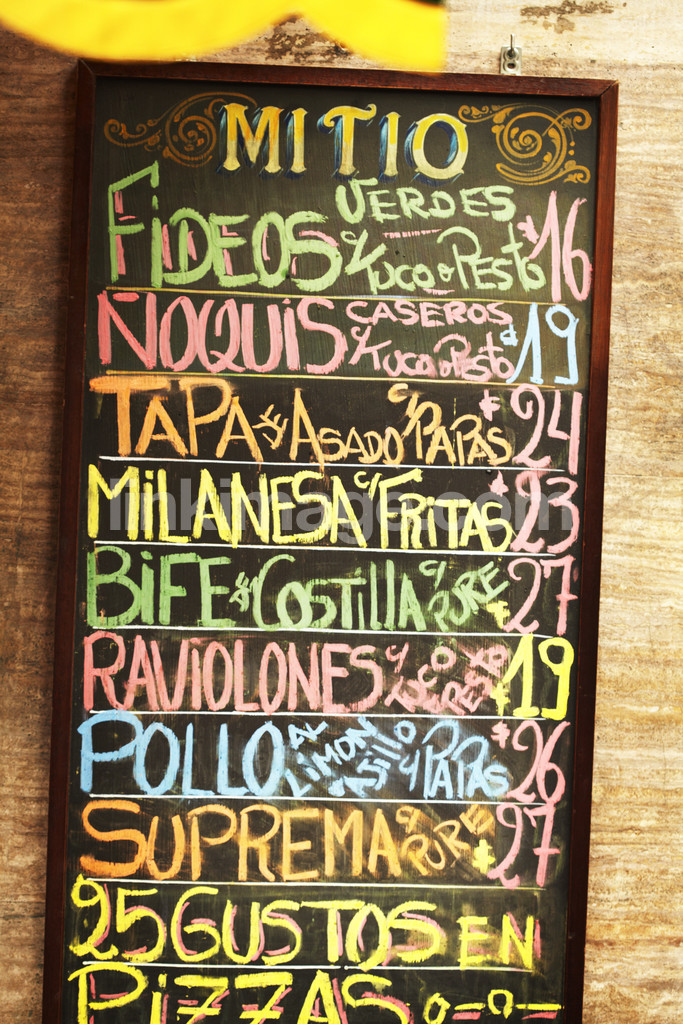 MI TIO
FIDEOS VERDES C/ TUCO o PESTO $16
ÑOQUIS CASEROS C/ TUCO o PESTO $19
TAPA DE ASADO C/ PAPAS $24
MILANESA C/ FRITAS $23
BIFE DE COSTILLA C/ PURE $27
RAVIOLONES C/ TUCO o PESTO $19
POLLO AL LIMON C/ PAPAS $26
SUPREMA C/ PURE $27
25 GUSTOS EN
PIZZAS
linkimage.com